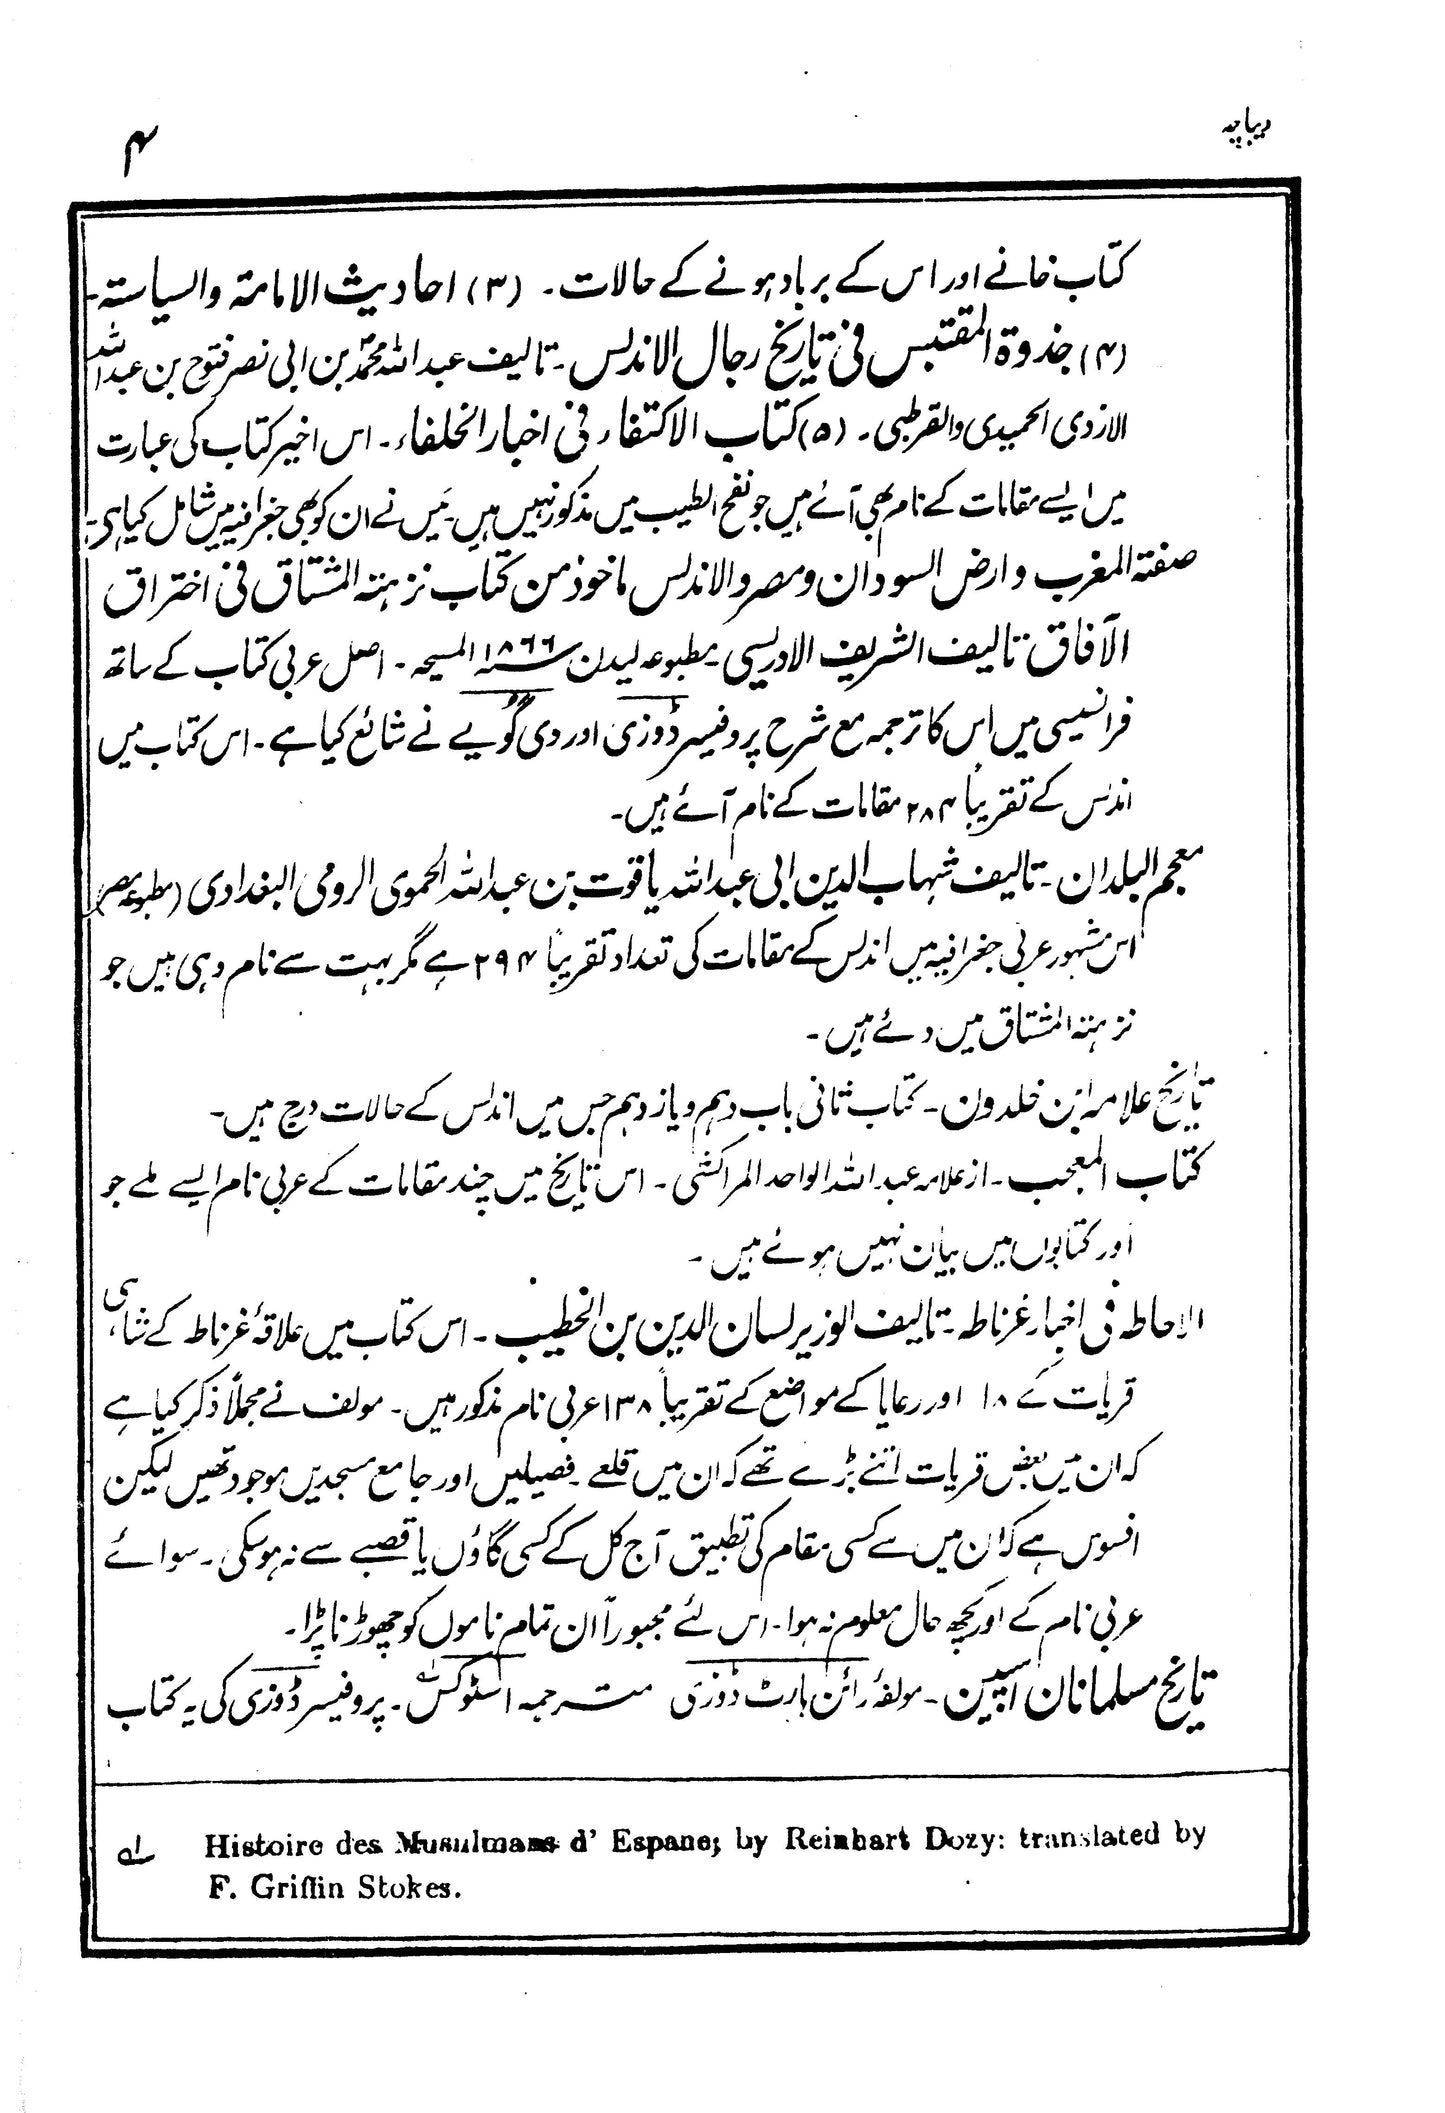 دیباچہ
۴
کتاب خانے اور اس کے برباد ہونے کے حالات۔ (۳) احادیث الامامۃ والسیاستہ۔
(۴) جذوۃ المقتبس فی تاریخ رجال الاندلس۔ تالیف عبداللہ محمد بن ابی نصر فتوح بن عبداللہ
الازدی الحمیدی والقرطبی۔ (۵) کتاب الاکتفاء فی اخبار الخلفاء۔ اس اخیر کتاب کی عبارت
میں ایسے مقامات کے نام بھی آئے ہیں جو نفح الطیب میں مذکور نہیں ہیں۔ میں نے ان کو بھی جغرافیہ میں شامل کیا ہی۔
صفتہ المغرب وارض السودان ومصر والاندلس ماخوذ من کتاب نزہتہ المشتاق فی اختراق
الآفاق تالیف الشریف الادریسی۔ مطبوعہ لیدن سنہ ۱۸۶۶ المسیحہ۔ اصل عربی کتاب کے ساتھ
فرانسیسی میں اس کا ترجمہ مع شرح پروفیسر ڈوزی اور دی گویے نے شائع کیا ہے۔ اس کتاب میں
اندلس کے تقریباً ۲۸۴ مقامات کے نام آئے ہیں۔
معجم البلدان۔ تالیف شہاب الدین ابی عبداللہ یاقوت بن عبداللہ الحموی الرومی البغدادی (مطبوعہ مصر)
اس مشہور عربی جغرافیہ میں اندلس کے مقامات کی تعداد تقریباً ۲۹۴ ہے مگر بہت سے نام وہی ہیں جو
نزہتہ المشتاق میں دئے ہیں۔
تاریخ علامہ ابن خلدون۔ کتاب ثانی باب دہم و یازدہم جس میں اندلس کے حالات درج ہیں۔
کتاب المعجب۔ از علامہ عبداللہ الواحد المراکشی۔ اس تاریخ میں چند مقامات کے عربی نام ایسے ملے جو
اور کتابوں میں بیان نہیں ہوئے ہیں۔
الاحاطہ فی اخبار غرناطہ۔ تالیف الوزیر لسان الدین بن الخطیب۔ اس کتاب میں علاقۂ غرناطہ کے شاہی
قریات کے ۱۸ اور رعایا کے مواضع کے تقریباً ۱۳۸ عربی نام مذکور ہیں۔ مولف نے مجملاً ذکر کیا ہے
کہ ان میں بعض قریات اتنے بڑے تھے کہ ان میں قلعے۔ فصیلیں اور جامع مسجدیں موجود تھیں لیکن
افسوس ہے کہ ان میں سے کسی مقام کی تطبیق آج کل کے کسی گاؤں یا قصبے سے نہ ہو سکی۔ سوائے
عربی نام کے اور کچھ حال معلوم نہ ہوا۔ اس لئے مجبوراً ان تمام ناموں کو چھوڑنا پڑا۔
تاریخ مسلمانان اسپین۔ مولفہٗ رائن ہارٹ ڈوزی مترجمہ اسٹوکس لہ۔ پروفیسر ڈوزی کی یہ کتاب
لہ Histoire des Musulmans d' Espane; by Reinhart Dozy: translated by
F. Griffin Stokes.